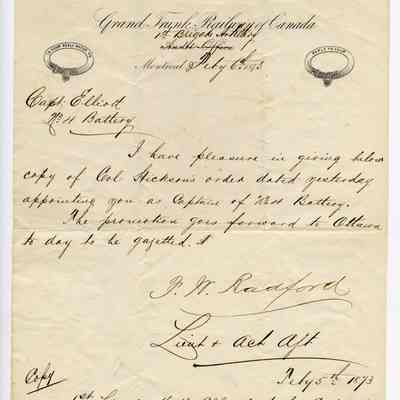 Grand Trunk Railway of Canada
1st Brigade Artillery
Audit Office
Montreal Feby 6th 1873
Capt. Elliott
No 4 Battery
I have pleasure in giving below
copy of Col Hickson's order dated yesterday
appointing you as Captain of No 4 Battery.
The promotion goes forward to Ottawa
to day to be gazetted.
F. W. Radford
Lieut & Act Ajt
Copy
Feby 5th 1873
1st